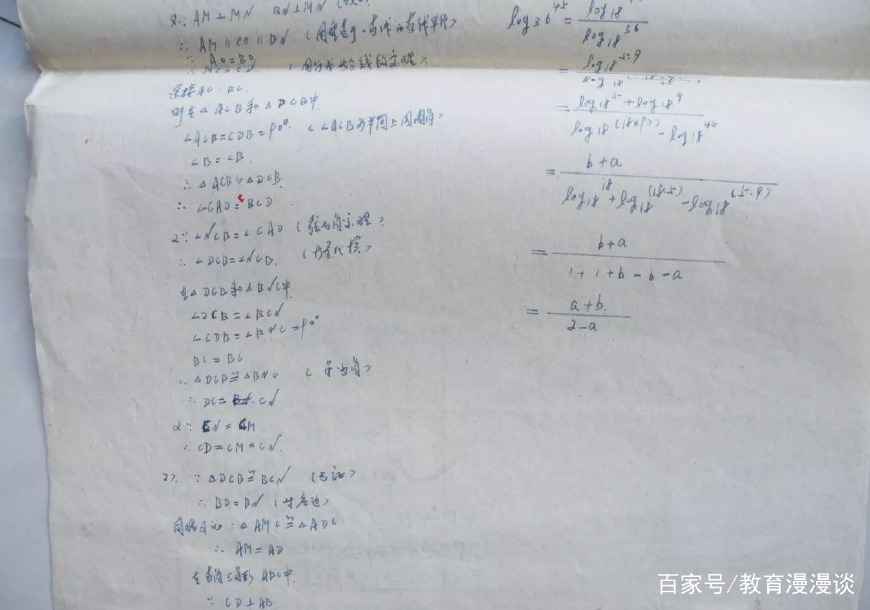 又∵ AM⊥MN BN⊥MN
∴ AM∥CO∥BN
∵ AO=BO
连接AC、BC.
则在△ACB和△DCB中
∠ACB=CDB=90°. <∠ACB为半圆上圆周角>
∠B=∠B.
∴ △ACB∽△DCB.
∴ ∠CAD=BCD
又∵∠NCB=∠CAD (弦切角定理)
∴ ∠DCB=∠NCB. (等量代换)
在△DCB和△BNC中
∠DCB=∠BCN
∠CDB=∠BNC=90°
BC=BC
∴ △DCB≌△BNC
∴ DC= CN
又∵ CN=CM
∴ CD=CM=CN.
2>. ∵ △DCB≌BCN (已证)
∴ BD=BN (对应边)
同理可证: △AMC≌△ADC
∴ AM=AD
在直角三角形ADC中.
∵ CD⊥AB
log36^45 = log18
log18^36
= log18^5·9
= log18^5+log18^9
log18^(18×) - log18^45
= b+a
log18^18+log18^(18·5)-log18^(5·9)
= b+a
1+1+b-b-a
= a+b.
2-a
百家号/教育漫漫谈